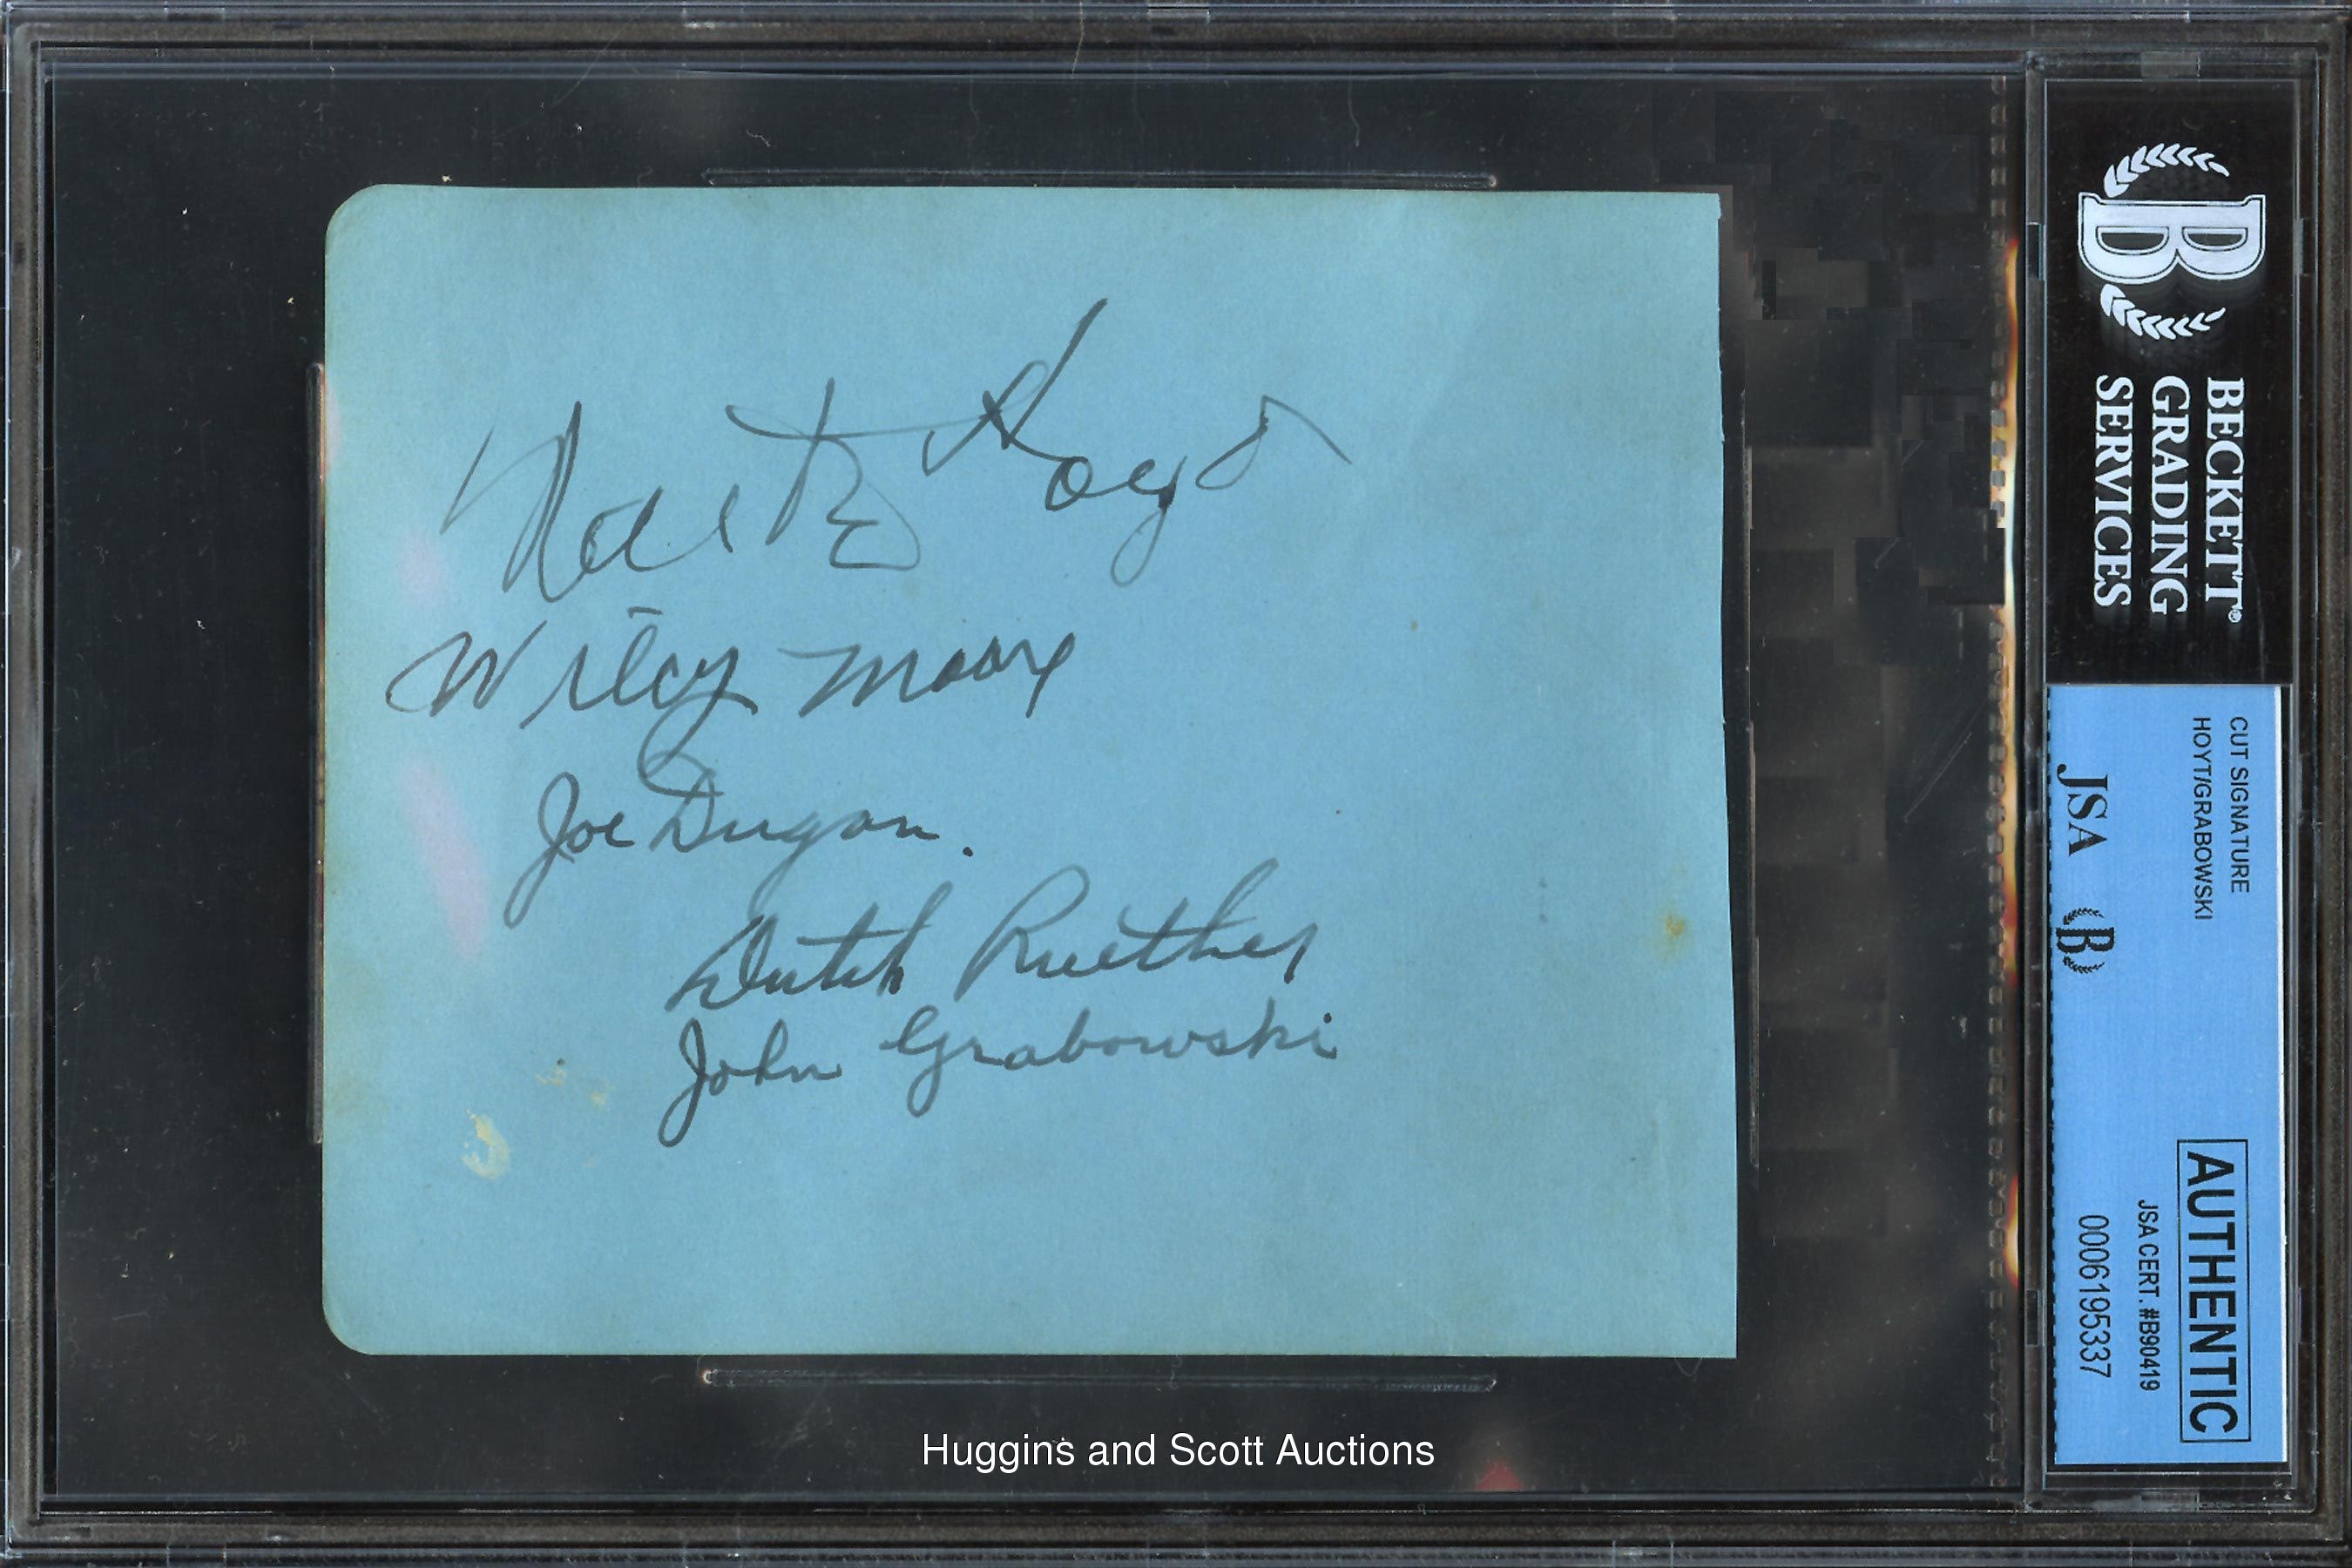 Waite Hoyt
Wilcy Moore
Joe Dugan.
Dutch Ruether
John Grabowski
Huggins and Scott Auctions
B
BECKETT®
GRADING
SERVICES
CUT SIGNATURE
HOYT/GRABOWSKI
JSA B
AUTHENTIC
JSA CERT. #B90419
0006195337